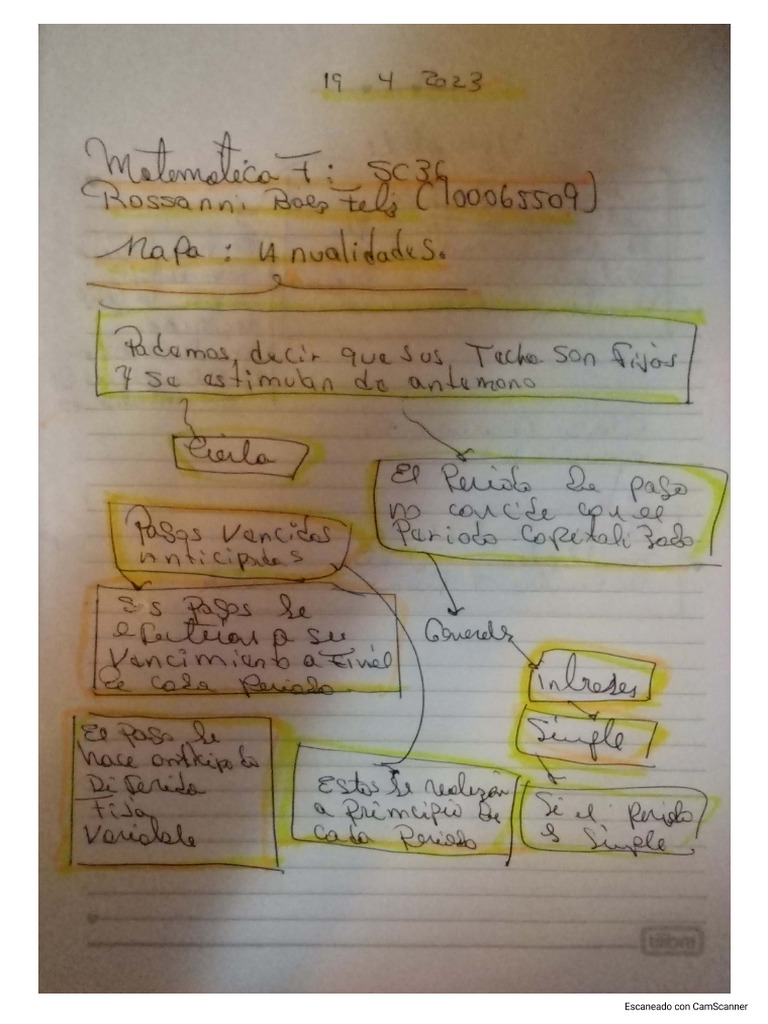 19 . 4 . 2023
Matematica F: SC36
Rossanni Baez Feliz (100065509)
Mapa: Anualidades.
Podemos decir que sus Fecha son Fijas
y se estimulan de antemano
Cierta
El Periodo de pago
no coincide con el
Periodo Capitalizado
Pagos Vencidos
Anticipadas
pagos se
efectuan a su
Vencimiento a Final
de cada Periodo
Generales
Intreses
Simple
El pago se
hace antkipado
Diferida
Fija
Variable
Estos se realizan
a principio de
cada Periodo
Si el periodo
es Simple
tilibra
Escaneado con CamScanner